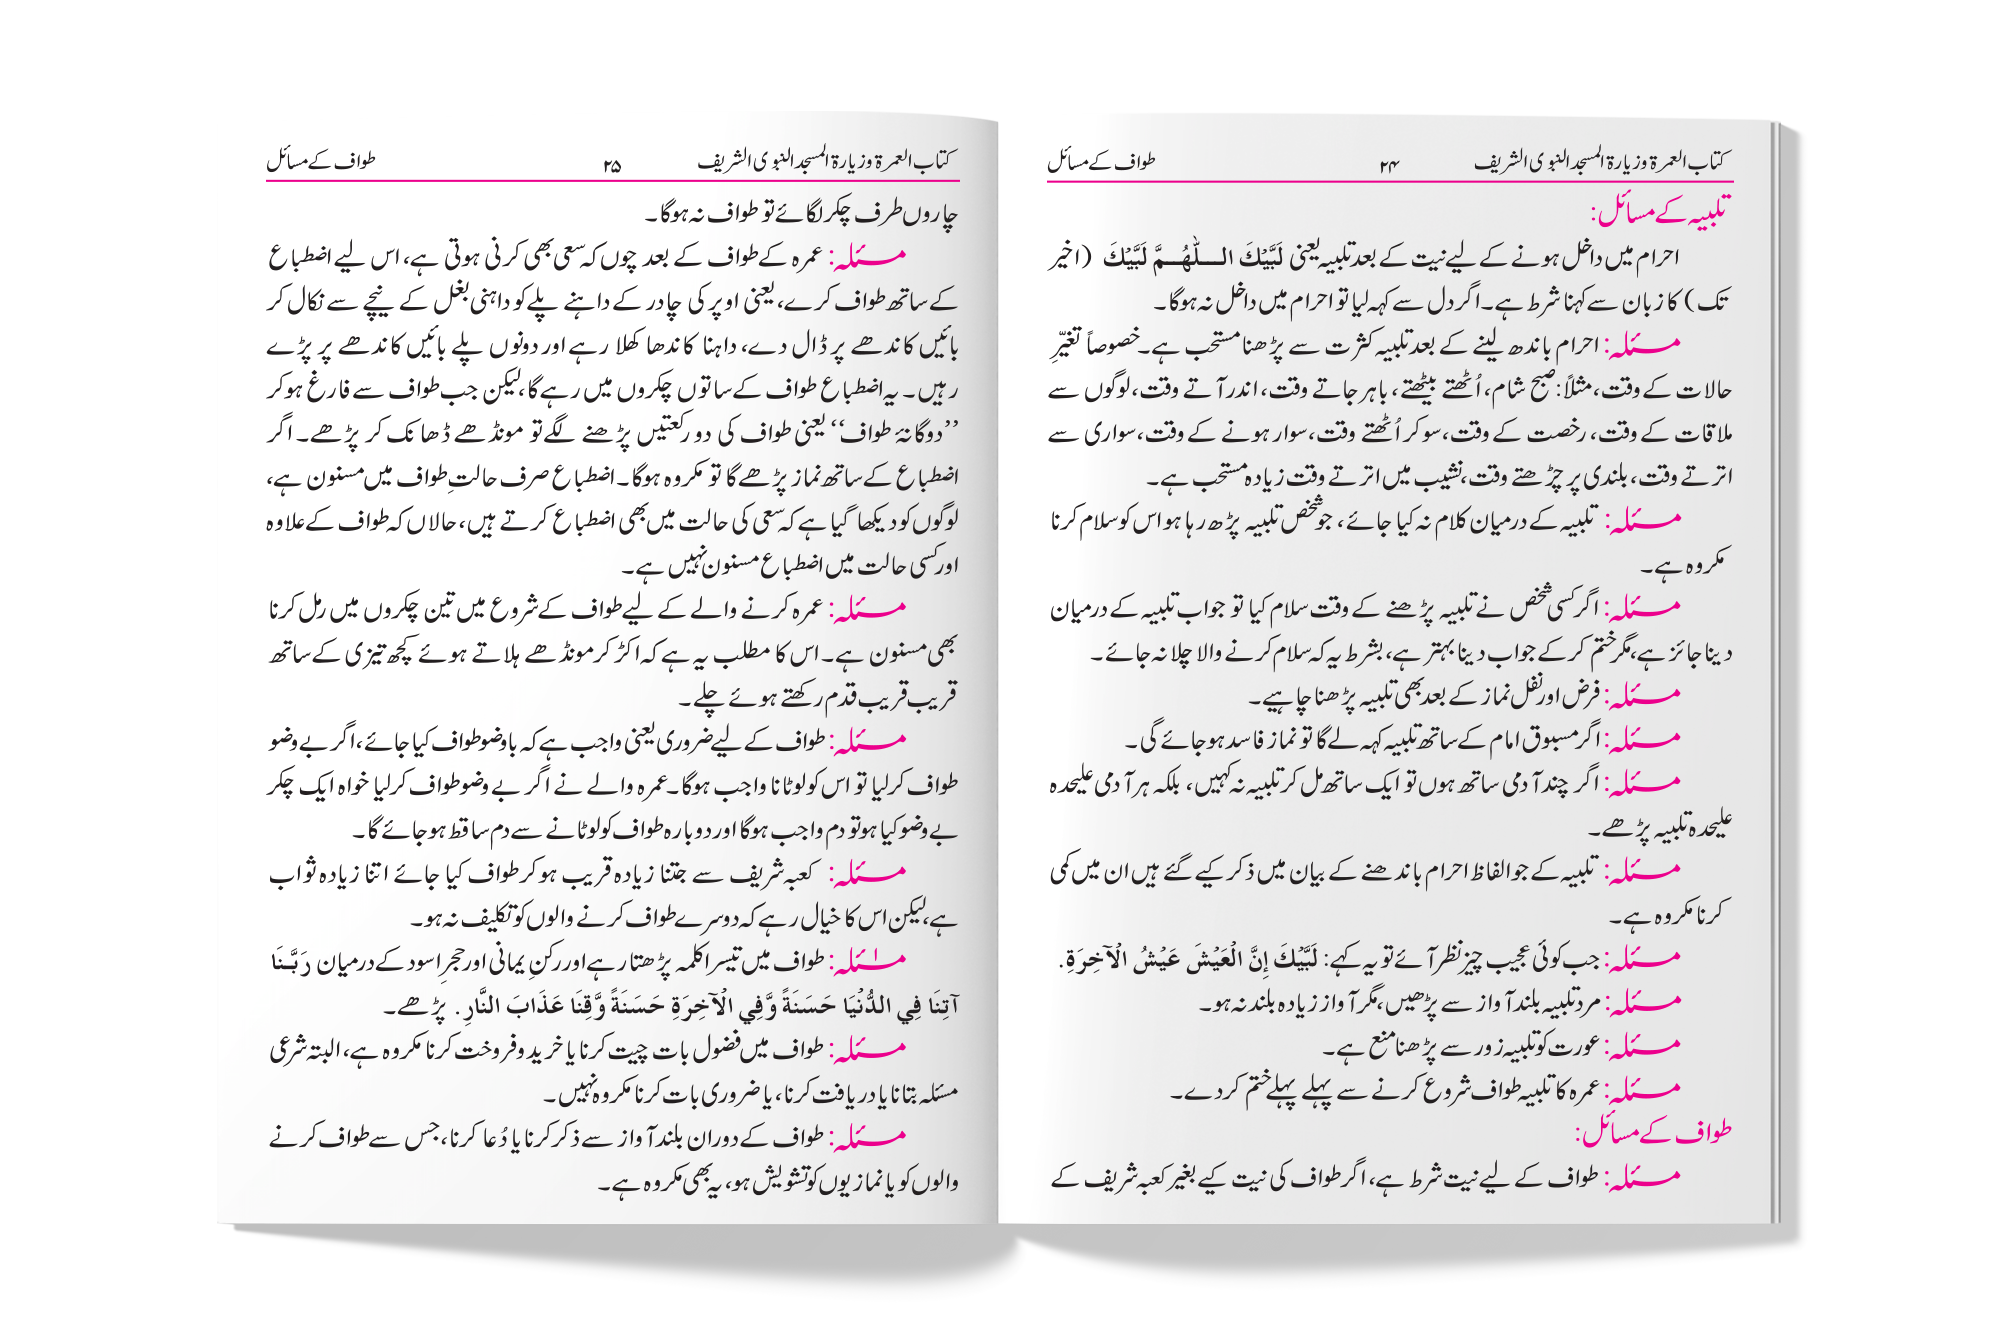 کتاب العمرۃ وزیارۃ المسجد النبوی الشریف ۲۴ طواف کے مسائل
تلبیہ کے مسائل:
احرام میں داخل ہونے کے لیے نیت کے بعد تلبیہ یعنی لَبَّيْكَ الــلّٰهُــمَّ لَبَّيْكَ (اخیر
تک) کا زبان سے کہنا شرط ہے۔ اگر دل سے کہہ لیا تو احرام میں داخل نہ ہوگا۔
مسئلہ: احرام باندھ لینے کے بعد تلبیہ کثرت سے پڑھنا مستحب ہے۔ خصوصاً تغیّرِ
حالات کے وقت، مثلاً: صبح شام، اُٹھتے بیٹھتے، باہر جاتے وقت، اندر آتے وقت، لوگوں سے
ملاقات کے وقت، رخصت کے وقت، سوکر اُٹھتے وقت، سوار ہونے کے وقت، سواری سے
اترتے وقت، بلندی پر چڑھتے وقت، نشیب میں اترتے وقت زیادہ مستحب ہے۔
مسئلہ: تلبیہ کے درمیان کلام نہ کیا جائے، جو شخص تلبیہ پڑھ رہا ہو اس کو سلام کرنا
مکروہ ہے۔
مسئلہ: اگر کسی شخص نے تلبیہ پڑھنے کے وقت سلام کیا تو جواب تلبیہ کے درمیان
دینا جائز ہے، مگر ختم کرکے جواب دینا بہتر ہے، بشرط یہ کہ سلام کرنے والا چلا نہ جائے۔
مسئلہ: فرض اور نفل نماز کے بعد بھی تلبیہ پڑھنا چاہیے۔
مسئلہ: اگر مسبوق امام کے ساتھ تلبیہ کہہ لے گا تو نماز فاسد ہو جائے گی۔
مسئلہ: اگر چند آدمی ساتھ ہوں تو ایک ساتھ مل کر تلبیہ نہ کہیں، بلکہ ہر آدمی علیحدہ
علیحدہ تلبیہ پڑھے۔
مسئلہ: تلبیہ کے جو الفاظ احرام باندھنے کے بیان میں ذکر کیے گئے ہیں ان میں کمی
کرنا مکروہ ہے۔
مسئلہ: جب کوئی عجیب چیز نظر آئے تو یہ کہے: لَبَّيْكَ إِنَّ الْعَيْشَ عَيْشُ الْآخِرَةِ.
مسئلہ: مرد تلبیہ بلند آواز سے پڑھیں، مگر آواز زیادہ بلند نہ ہو۔
مسئلہ: عورت کو تلبیہ زور سے پڑھنا منع ہے۔
مسئلہ: عمرہ کا تلبیہ طواف شروع کرنے سے پہلے پہلے ختم کردے۔
طواف کے مسائل:
مسئلہ: طواف کے لیے نیت شرط ہے، اگر طواف کی نیت کیے بغیر کعبہ شریف کے
کتاب العمرۃ وزیارۃ المسجد النبوی الشریف ۲۵ طواف کے مسائل
چاروں طرف چکر لگائے تو طواف نہ ہوگا۔
مسئلہ: عمرہ کے طواف کے بعد چوں کہ سعی بھی کرنی ہوتی ہے، اس لیے اضطباع
کے ساتھ طواف کرے، یعنی اوپر کی چادر کے داہنے پلے کو داہنی بغل کے نیچے سے نکال کر
بائیں کاندھے پر ڈال دے، داہنا کاندھا کھلا رہے اور دونوں پلے بائیں کاندھے پر پڑے
رہیں۔ یہ اضطباع طواف کے ساتوں چکروں میں رہے گا، لیکن جب طواف سے فارغ ہوکر
’’دوگانۂ طواف‘‘ یعنی طواف کی دو رکعتیں پڑھنے لگے تو مونڈھے ڈھانک کر پڑھے۔ اگر
اضطباع کے ساتھ نماز پڑھے گا تو مکروہ ہوگا۔ اضطباع صرف حالتِ طواف میں مسنون ہے،
لوگوں کو دیکھا گیا ہے کہ سعی کی حالت میں بھی اضطباع کرتے ہیں، حالاں کہ طواف کے علاوہ
اور کسی حالت میں اضطباع مسنون نہیں ہے۔
مسئلہ: عمرہ کرنے والے کے لیے طواف کے شروع میں تین چکروں میں رمل کرنا
بھی مسنون ہے۔ اس کا مطلب یہ ہے کہ اکڑ کر مونڈھے ہلاتے ہوئے کچھ تیزی کے ساتھ
قریب قریب قدم رکھتے ہوئے چلے۔
مسئلہ: طواف کے لیے ضروری یعنی واجب ہے کہ باوضو طواف کیا جائے، اگر بے وضو
طواف کرلیا تو اس کو لوٹانا واجب ہوگا۔ عمرہ والے نے اگر بے وضو طواف کرلیا خواہ ایک چکر
بے وضو کیا ہو تو دم واجب ہوگا اور دوبارہ طواف کو لوٹانے سے دم ساقط ہو جائے گا۔
مسئلہ: کعبہ شریف سے جتنا زیادہ قریب ہوکر طواف کیا جائے اتنا زیادہ ثواب
ہے، لیکن اس کا خیال رہے کہ دوسرے طواف کرنے والوں کو تکلیف نہ ہو۔
مسئلہ: طواف میں تیسرا کلمہ پڑھتا رہے اور رکنِ یمانی اور حجرِ اسود کے درمیان رَبَّـنَا
آتِنَا فِي الدُّنْيَا حَسَنَةً وَّفِي الْآخِرَةِ حَسَنَةً وَّقِنَا عَذَابَ النَّارِ. پڑھے۔
مسئلہ: طواف میں فضول بات چیت کرنا یا خرید و فروخت کرنا مکروہ ہے، البتہ شرعی
مسئلہ بتانا یا دریافت کرنا، یا ضروری بات کرنا مکروہ نہیں۔
مسئلہ: طواف کے دوران بلند آواز سے ذکر کرنا یا دُعا کرنا، جس سے طواف کرنے
والوں کو یا نمازیوں کو تشویش ہو، یہ بھی مکروہ ہے۔